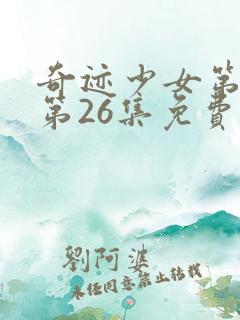 奇迹少女第
第26集免費
劉阿婆
未经同意禁止转载